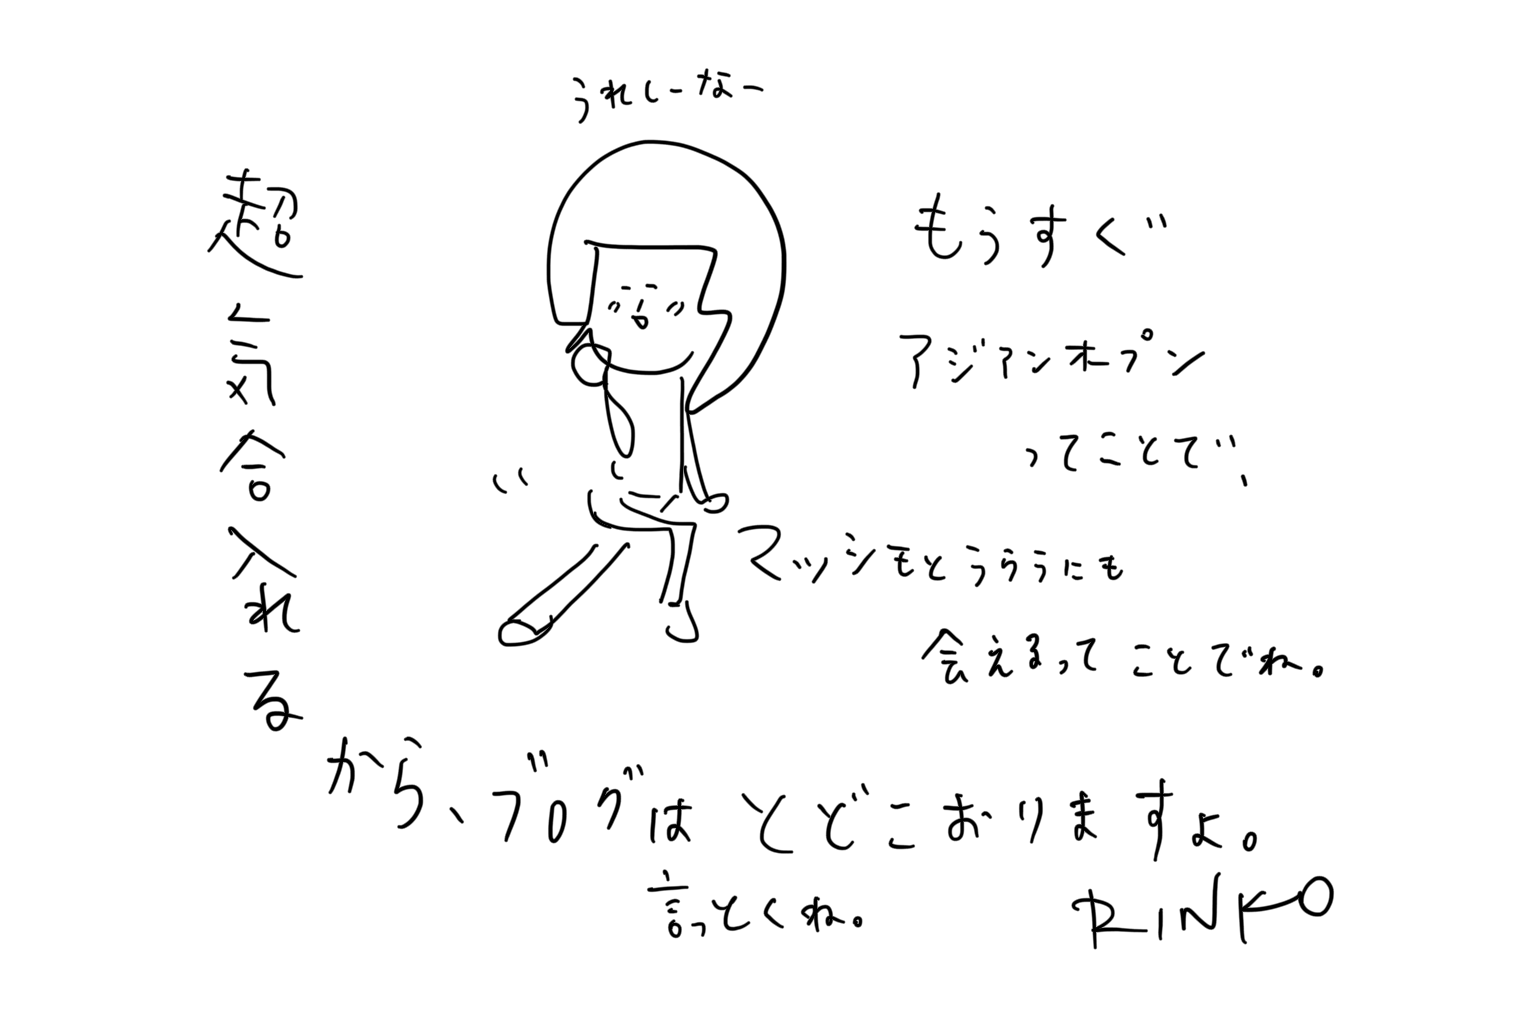 うれしーなー
もうすぐ
アジアンオープン
ってことで、
マッシモとうららうにも
会えるってことでね。
超気合入れる
から、ブログはとどこおりますよ。
言っとくね。
RINKO